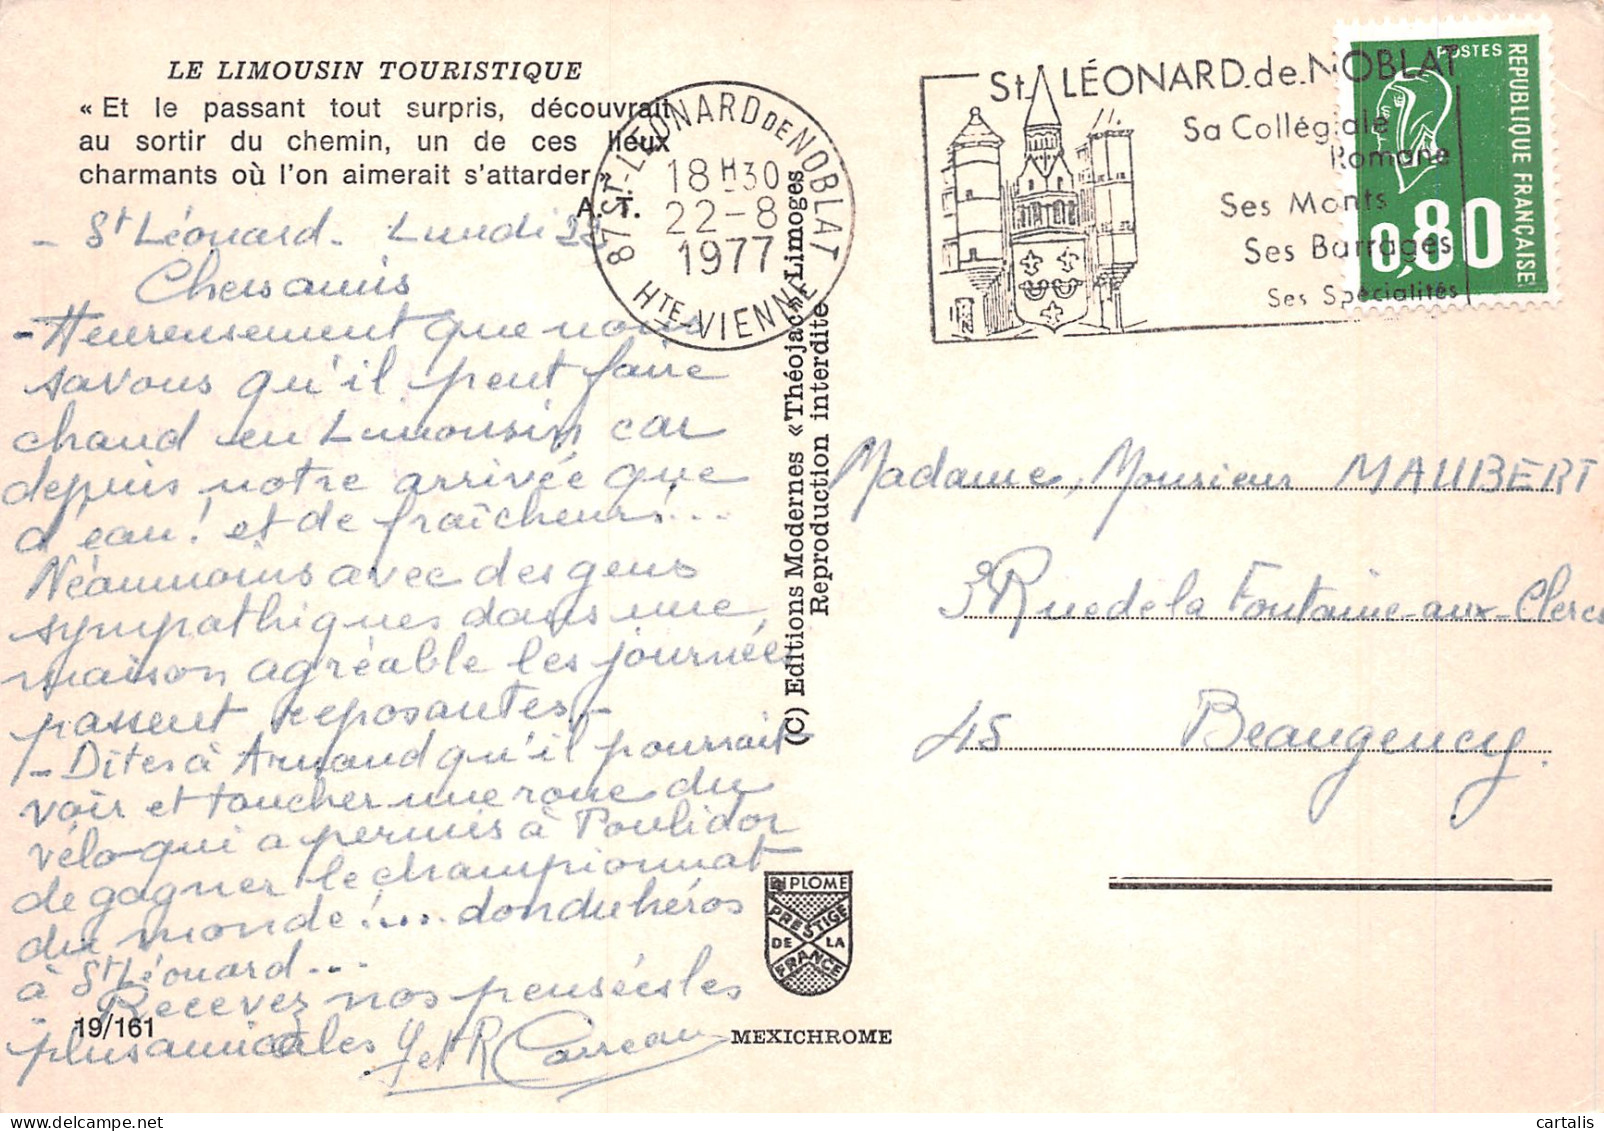 LE LIMOUSIN TOURISTIQUE
« Et le passant tout surpris, découvrait
au sortir du chemin, un de ces lieux
charmants où l'on aimerait s'attarder »
A. T.
- St Léonard - Lundi 22
Chers amis
- Heureusement que nous
savons qu'il peut faire
chaud en Limousin car
depuis notre arrivée que
d'eau ! et de fraîcheurs ...
Néanmoins avec des gens
sympathiques dans une
maison agréable les journées
passent reposantes -
- Dites à Arnaud qu'il pourrait
voir et toucher une roue du
vélo qui a permis à Poulidor
de gagner le championnat
du monde ! ... don du héros
à St Léonard ...
Recevez nos pensées les
plus amicales Y et R Carreau
19/161
87 ST-LEONARD DE NOBLAT
18 H 30
22-8
1977
HTE-VIENNE
St LÉONARD.de.NOBLAT
Sa Collégiale
Romane
Ses Monts
Ses Barrages
Ses Spécialités
POSTES
REPUBLIQUE FRANÇAISE
0,80
(C) Editions Modernes «Théojac» Limoges
Reproduction interdite
Madame, Monsieur MAUBERT
3 Rue de la Fontaine-aux-Clercs
45 Beaugency.
DIPLOME
PRESTIGE
DE LA
FRANCE
MEXICHROME
cartalis sur delcampe.net